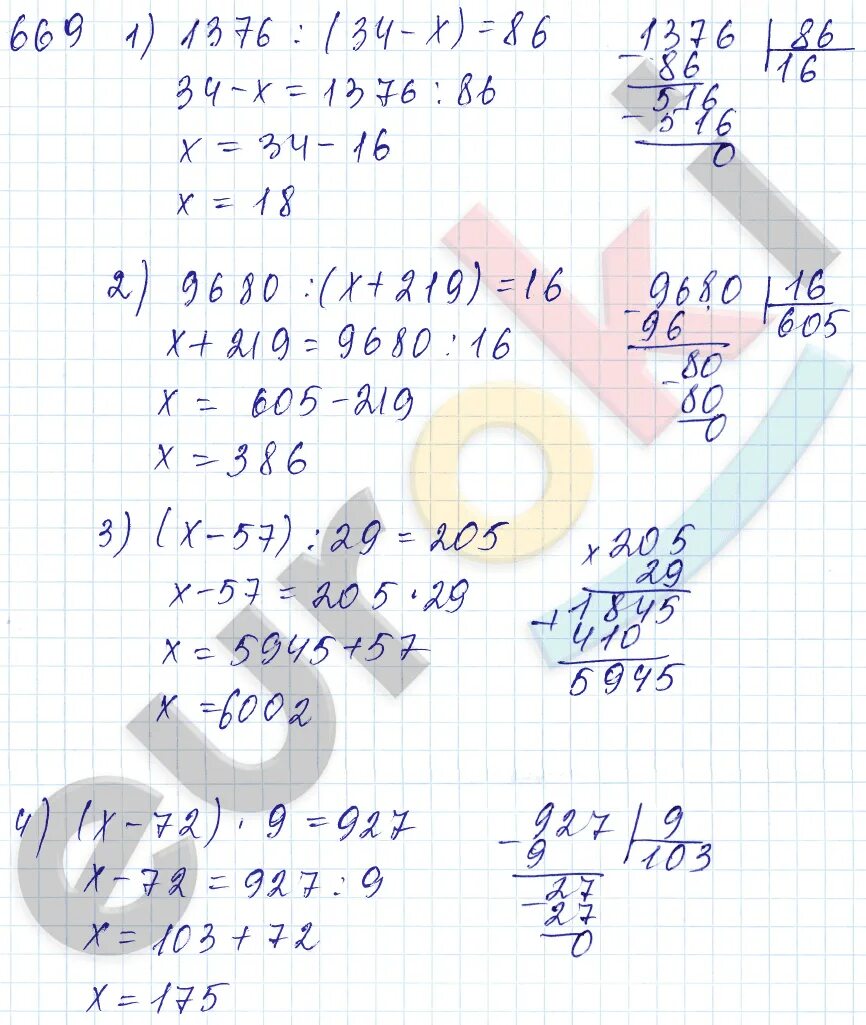 669 1) 1376 : (34 - x) = 86
34 - x = 1376 : 86
x = 34 - 16
x = 18
1376 | 86
- 86 16
516
- 516
0
2) 9680 : (x + 219) = 16
x + 219 = 9680 : 16
x = 605 - 219
x = 386
- 9680 | 16
96 605
80
- 80
0
3) (x - 57) : 29 = 205
x - 57 = 205 · 29
x = 5945 + 57
x = 6002
x 205
29
+ 1845
410
5945
4) (x - 72) · 9 = 927
x - 72 = 927 : 9
x = 103 + 72
x = 175
- 927 | 9
9 103
- 27
27
0
euroki